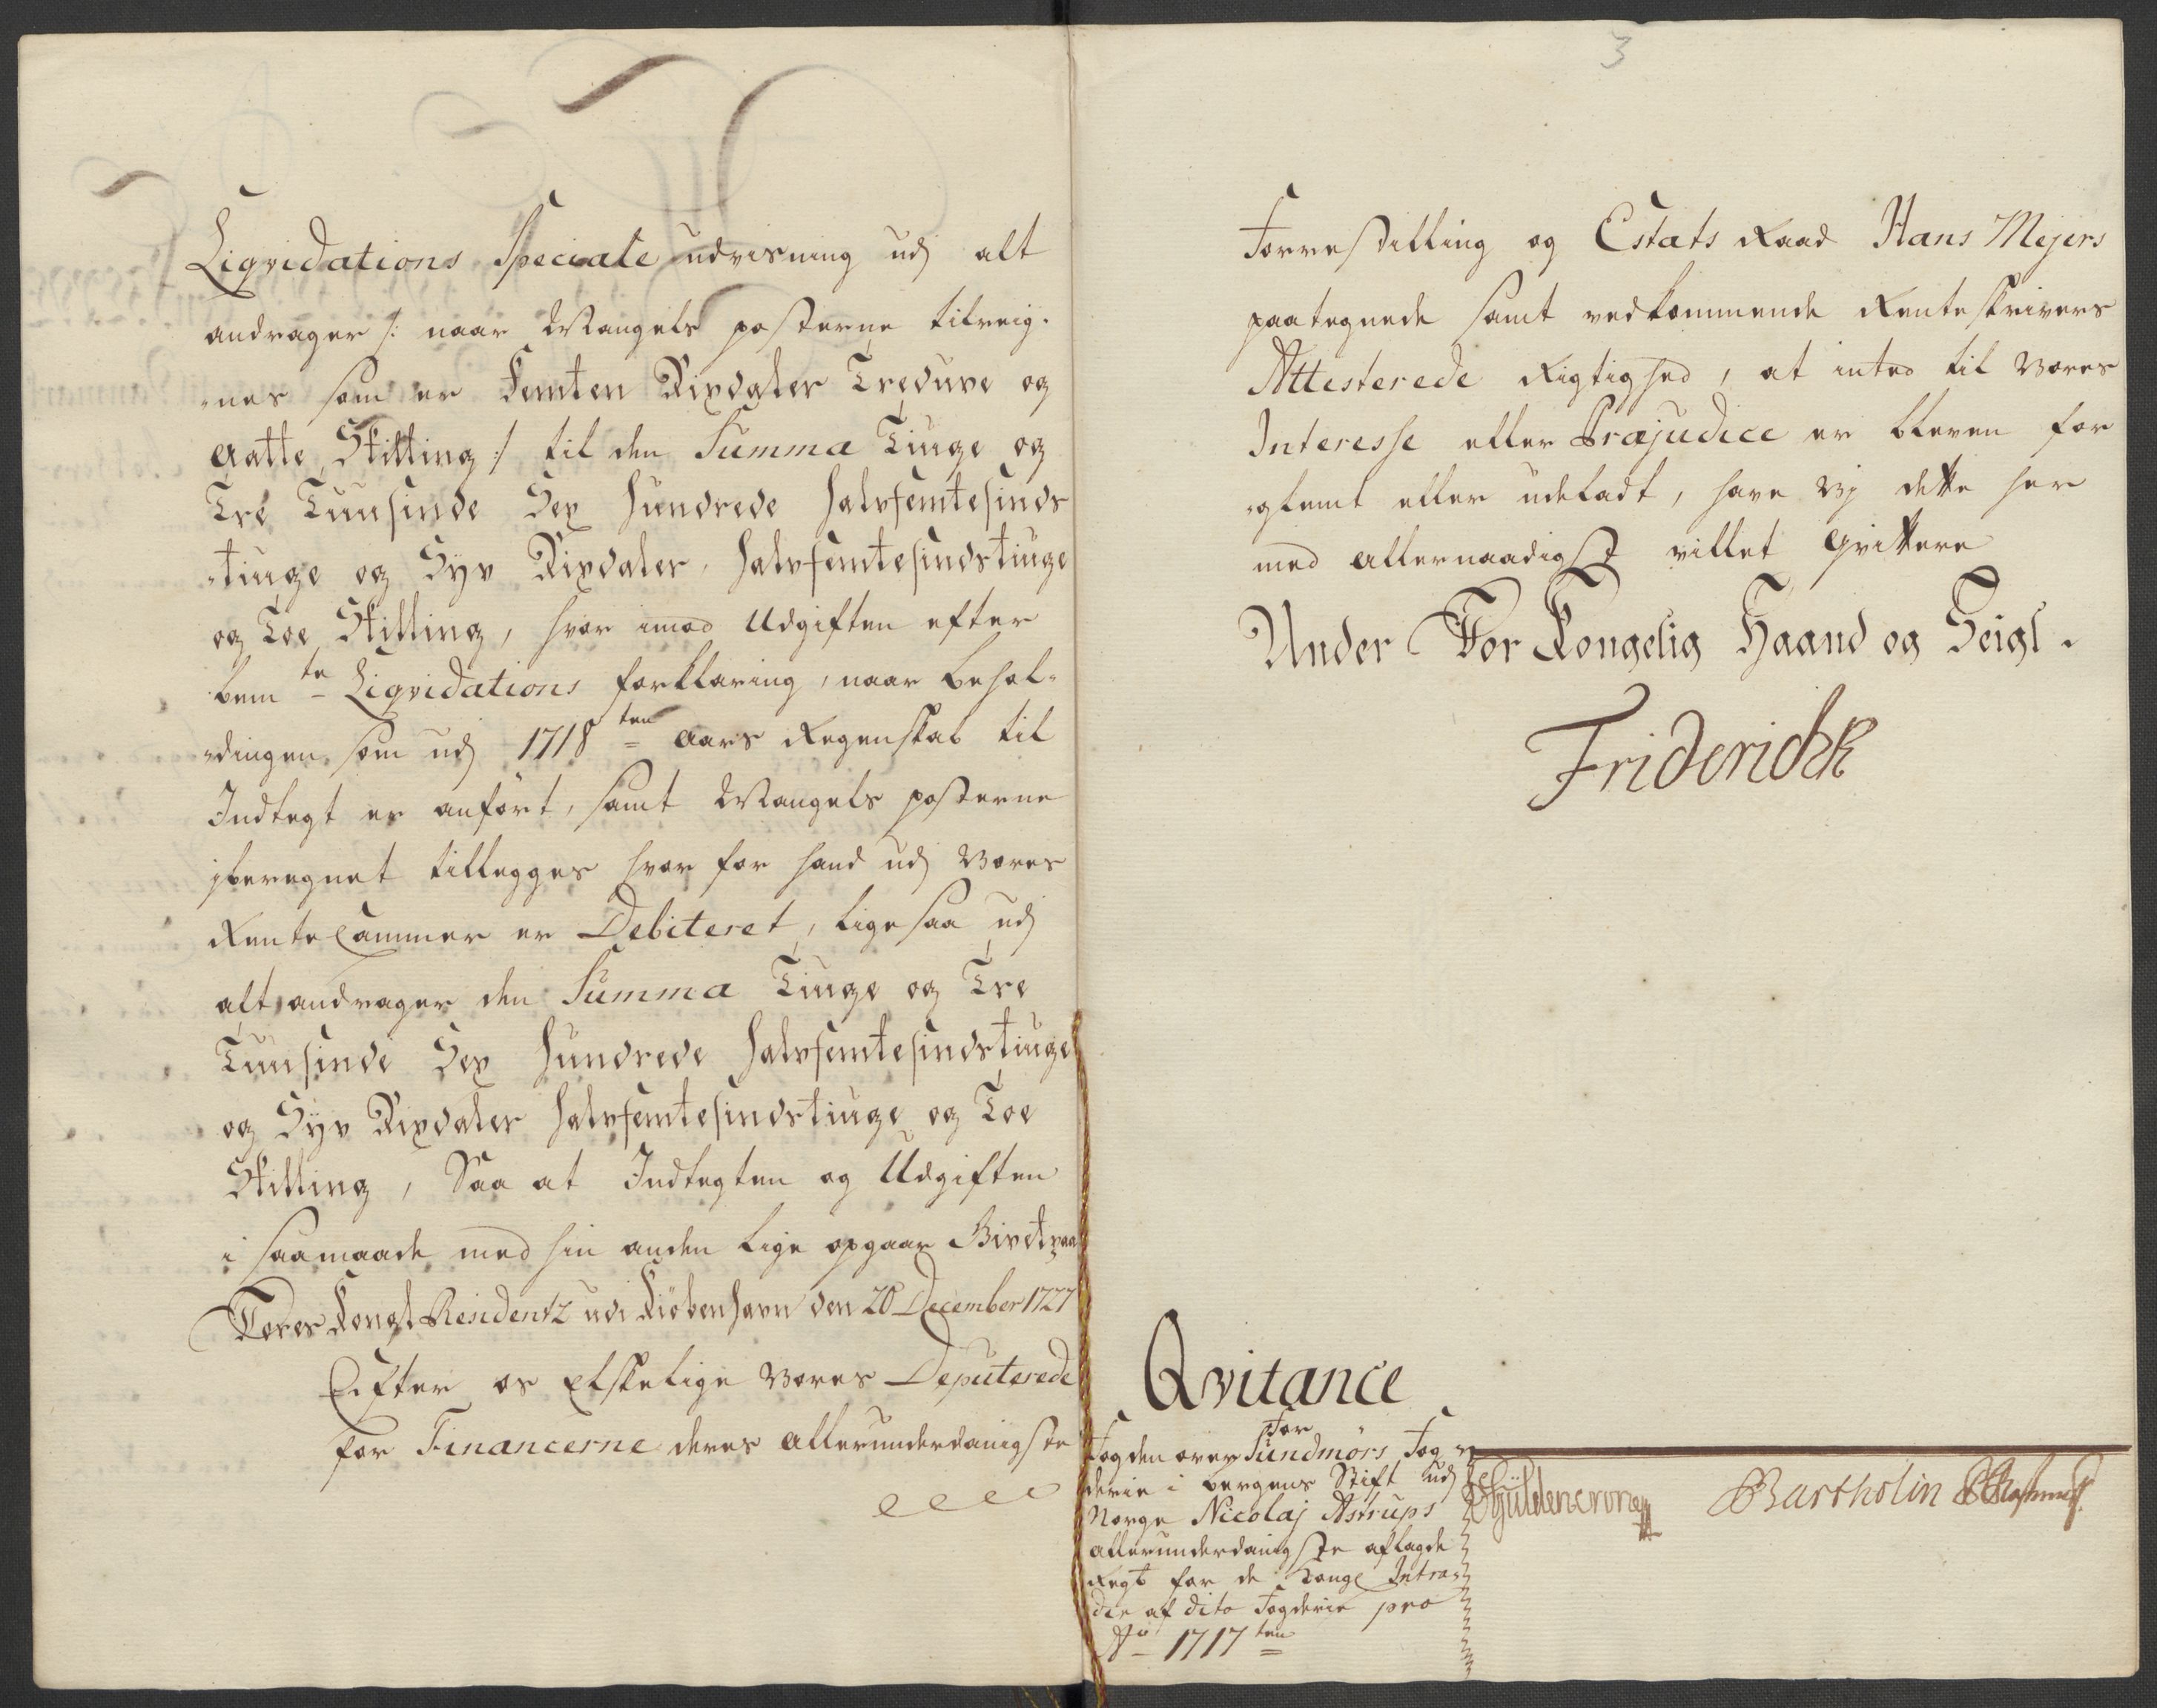 Liqvidations Speciale udvisning udj alt
andrager /: naar Mangels posterne tilreig-
nes som er Femten Rixdaler Treduve og
Aatte Skilling :/ til den Summa Tiuge og
Tre Tuusinde Sex hundrede halvfemtesinds
tiuge og Syv Rixdaler, halvfemtesindstiuge
og Toe Skilling, hvor imod Udgiften efter
bemte Liqvidations forklaring, naar behol-
dingen som udj 1718ten Aars Regenskab til
Indtegt er anført, samt Mangels posterne
iberegnet tillegges hvor for hand udj Vores
Rente Cammer er Debiteret, ligesaa udj
alt andrager den Summa Tiuge og Tre
Tuusinde Sex hundrede halvfemtesindstiuge
og Syv Rixdaler halvfemtesindstiuge og Toe
Skilling, Saa at Indtegten og Udgiften
i saamaade med hin anden lige opgaar Givet paa
Vores Kongl Residentz udi Kiøbenhavn den 20 December 1727
Efter os Elskelige Vores Deputerede
for Financerne deres allerunderdanigste
3
Forrestilling og Estats Raad Hans Mejers
paategnede samt vedkommende Renteskrivers
Attesterede Rigtighed, at inted til Vores
Interesse eller Præjudice er bleven for
glemt eller udeladt, have Vj dette her
med allernaadigst villet qvittere
Under Vor Kongelig Haand og Seigl.
Friderich R
Qvitance
For
Fogden over Sundmørs Fog
derie i Bergens Stift udj
Norge Nicolaj Astrups
allerunderdanigste aflagde
Regb for de Kongl Intra
der af dito Fogderie pro
Ao 1717ten
Güldencrone
Bartholin